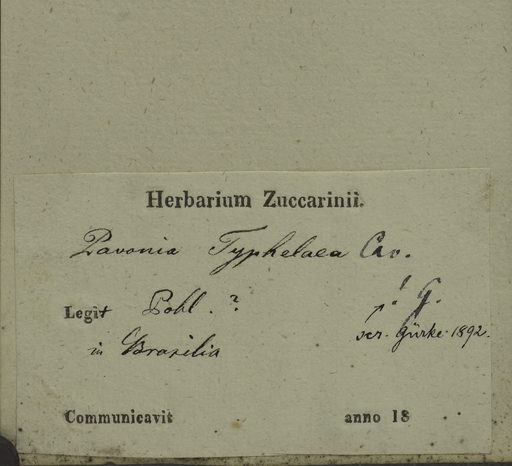 Herbarium Zuccarinii.
Pavonia Typhelaea Cav.
Legit Pohl. ?
! G.
in Brasilia
scr. Gürke 1892.
Communicavit anno 18